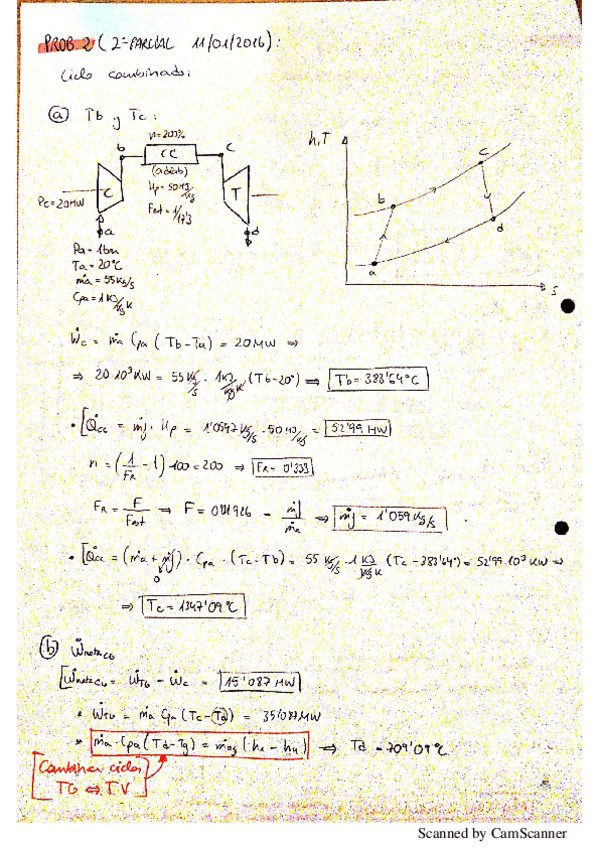 PROB. 2 (2º PARCIAL 11/01/2016):
Ciclo combinado:
ⓐ Tb y Tc:
n=200%
b
CC
c
(adiab)
Hp = 50 MJ/kg
Fest = 1/17'3
C
T
Pc=20MW
a
d
Pa = 1bar
Ta = 20°C
ṁa = 55 kg/s
Cpa = 1 KJ/kgK
h,T
c
b
d
a
s
Ẇc = ṁa Cpa (Tb - Ta) = 20 MW ⇒
⇒ 20·10³ KW = 55 kg/s · 1 KJ/kgK (Tb-20°) ⇒ Tb = 383'64°C
• [Q̇cc = ṁf · Hp = 1'0597 kg/s · 50 MJ/kg = 52'99 MW
n = (1/FR - 1)·100 = 200 ⇒ FR = 0'333
FR = F/Fest ⇒ F = 0'01926 - ṁf/ṁa ⇒ ṁf = 1'059 kg/s
• [Q̇cc = (ṁa + ṁf) · Cpa · (Tc - Tb) = 55 kg/s · 1 KJ/kgK (Tc - 383'64°) = 52'99·10³ KW ⇒
0
⇒ Tc = 1347'09°C
ⓑ Ẇneta CG
[Ẇneta CG = ẆTG - Ẇc = 15'087 MW
* ẆTG = ṁa Cpa (Tc - Td) = 35'087 MW
* ṁa · Cpa (Td - Tg) = ṁag (h - h) ⇒ Td = 709'09°C
[Combinar ciclos
TG ⇔ TV]
Scanned by CamScanner